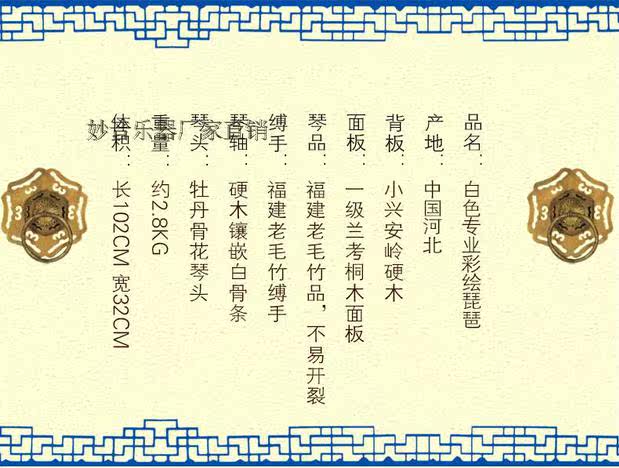 品名：白色专业彩绘琵琶
产地：中国河北
背板：小兴安岭硬木
面板：一级兰考桐木面板
琴品：福建老毛竹品，不易开裂
缚手：福建老毛竹缚手
琴轴：硬木镶嵌白骨条
琴头：牡丹骨花琴头
重量：约2.8KG
体积：长102CM 宽32CM
妙音乐器厂家直销